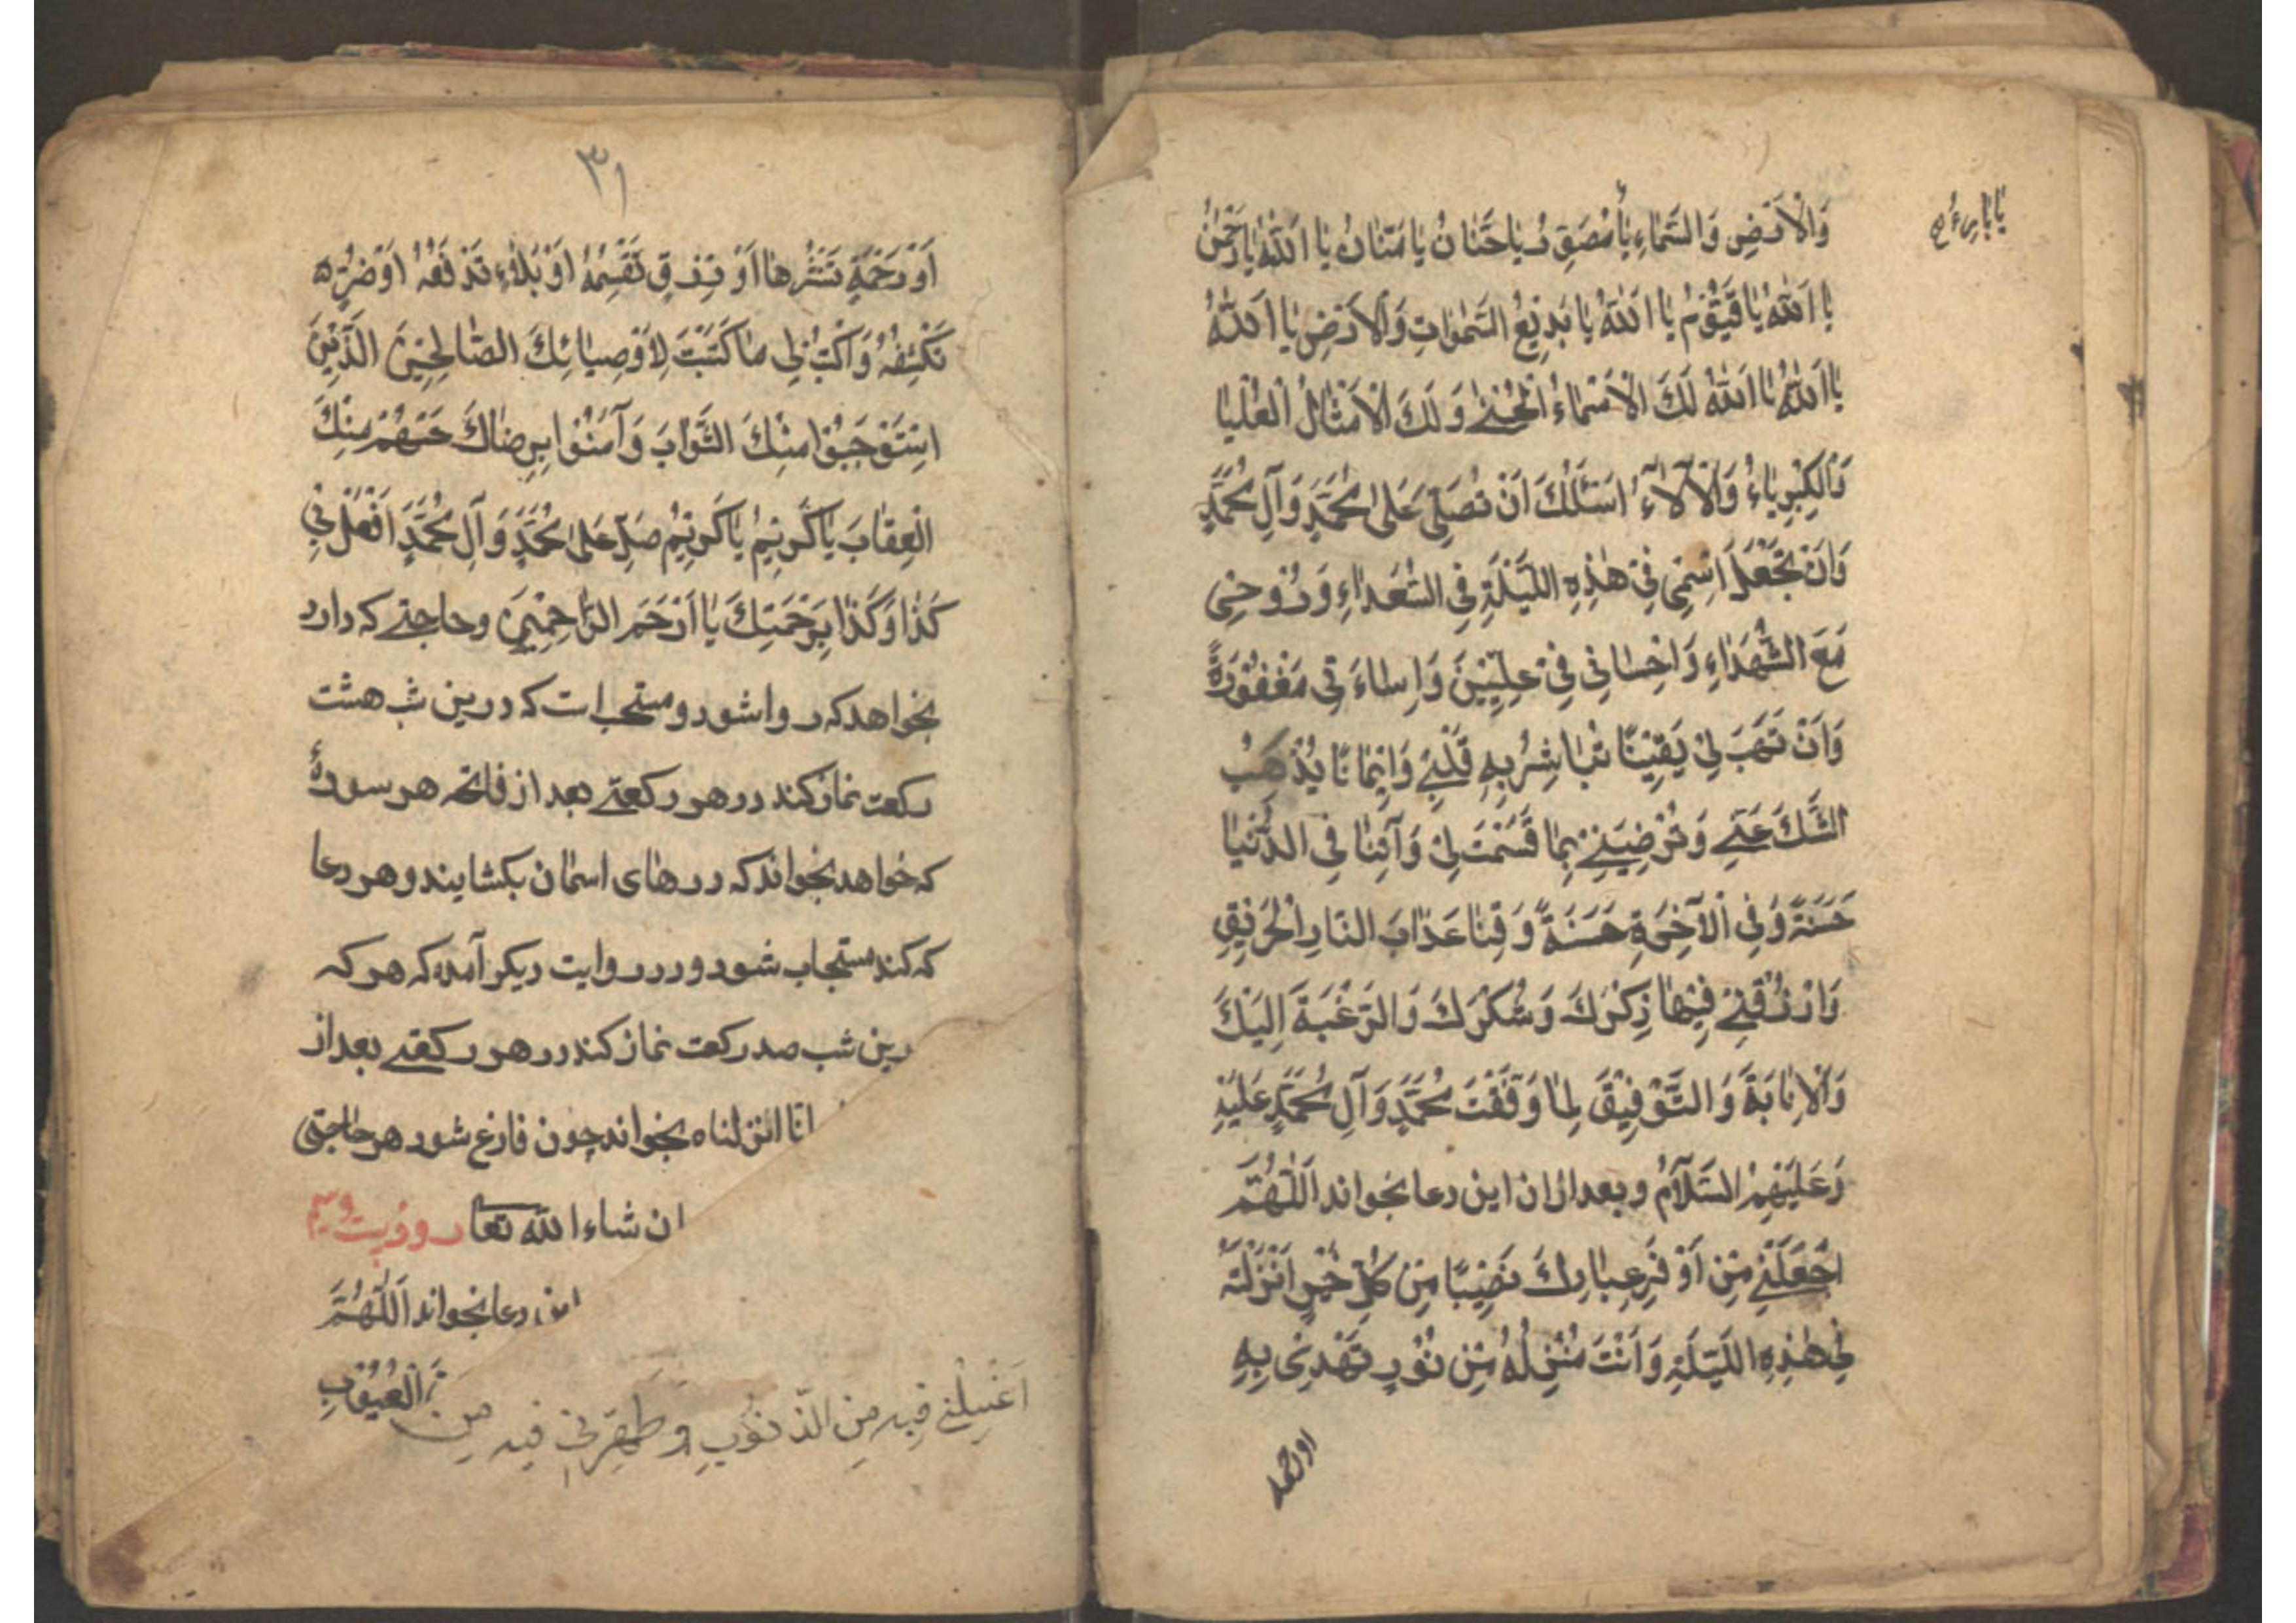 وَالْاَرْضِ وَالسَّمَاءِ يَا مُصَوِّرُ يَا حَنَّانُ يَا مَنَّانُ يَا اَللّٰهُ يَا رَحْمٰنُ
يَا بَارِئُ
يَا اَللّٰهُ يَا قَيُّوْمُ يَا اَللّٰهُ يَا بَدِيْعُ السَّمٰوَاتِ وَالْاَرْضِ يَا اَللّٰهُ
يَا اَللّٰهُ يَا اَللّٰهُ لَكَ الْاَسْمَاءُ الْحُسْنٰى وَ لَكَ الْاَمْثَالُ الْعُلْيَا
وَالْكِبْرِيَاءُ وَالْآلَاءُ اَسْئَلُكَ اَنْ تُصَلِّيَ عَلٰى مُحَمَّدٍ وَآلِ مُحَمَّدٍ
وَاَنْ تَجْعَلَ اسْمِى فِيْ هٰذِهِ اللَّيْلَةِ فِي السُّعَدَاءِ وَرُوْحِى
مَعَ الشُّهَدَاءِ وَاِحْسَانِي فِيْ عِلِّيِّيْنَ وَاِسَاءَتِي مَغْفُوْرَةً
وَاَنْ تَهَبَ لِيْ يَقِيْنًا تُبَاشِرُ بِهِ قَلْبِيْ وَاِيْمَانًا يُذْهِبُ
الشَّكَّ عَنِّي وَتُرْضِيَنِيْ بِمَا قَسَمْتَ لِيْ وَآتِنَا فِي الدُّنْيَا
حَسَنَةً وَفِي الْآخِرَةِ حَسَنَةً وَقِنَا عَذَابَ النَّارِ الْحَرِيْقِ
وَارْزُقْنِيْ فِيْهَا ذِكْرَكَ وَشُكْرَكَ وَالرَّغْبَةَ اِلَيْكَ
وَالْاِنَابَةَ وَالتَّوْفِيْقَ لِمَا وَفَّقْتَ مُحَمَّدٍ وَآلِ مُحَمَّدٍ عَلَيْهِ
وَعَلَيْهِمُ السَّلَامُ وبعد ازان این دعا بخواند اَللّٰهُمَّ
اجْعَلْنِيْ مِنْ اَوْفَرِ عِبَادِكَ نَصِيْبًا مِنْ كُلِّ خَيْرٍ اَنْزَلْتَهُ
فِي هٰذِهِ اللَّيْلَةِ وَاَنْتَ مُنْزِلُهُ مِنْ نُوْرٍ تَهْدِى بِهِ
اورحمة
۳۱
اَوْ رَحْمَةٍ تَنْشُرُهَا اَوْ رِزْقٍ تَقْسِمُهُ اَوْ بَلَاءٍ تَدْفَعُهُ اَوْ ضُرٍّ
تَكْشِفُهُ وَاكْتُبْ لِي مَا كَتَبْتَ لِاَوْصِيَائِكَ الصَّالِحِيْنَ الَّذِيْنَ
اسْتَوْجَبُوْا مِنْكَ الثَّوَابَ وَآمَنُوْا بِرِضَاكَ عَنْهُمْ مِنْكَ
الْعِقَابَ يَا كَرِيْمُ يَا كَرِيْمُ صَلِّ عَلٰى مُحَمَّدٍ وَ آلِ مُحَمَّدٍ اَفْعَلْ بِي
كَذَا وَكَذَا بِرَحْمَتِكَ يَا اَرْحَمَ الرَّاحِمِيْنَ وحاجتے كه دارد
بخواهد كه روا شود و مستحب است كه درین شب هشت
ركعت نماز كند در هر ركعتے بعد از فاتحه هر سورهٔ
كه خواهد بخواند كه درهای اسمان بكشایند و هر دعا
كه كند مستجاب شود و در روایت دیكر آمده كه هر كه
درین شب صد ركعت نماز كند در هر ركعتے بعد از
انا انزلناه بخواند چون فارغ شود هر حاجتی
ان شاء الله تعا روز بیست وسیم
این دعا بخواند اَللّٰهُمَّ
اغْسِلْنِي فِيهِ مِنَ الذُّنُوْبِ وَ طَهِّرْنِي فيه مِنَ الْعُيُوْبِ